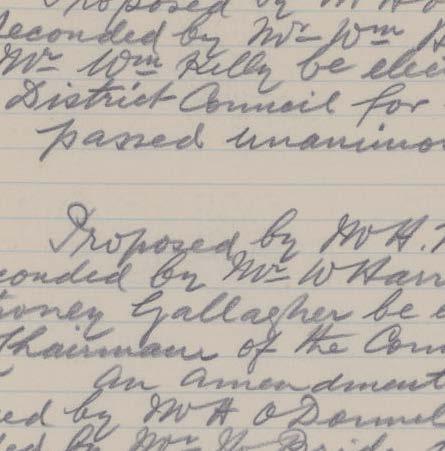 Proposed by M H
Seconded by Mr Wm H
Mr Wm Kelly be elec
District Council for
passed unanimo
Proposed by M H.
conded by Mr W Harr
toney Gallagher be e
Chairman of the Com
An amendment
ed by M H O'Donnel
ded by Mr W Brid